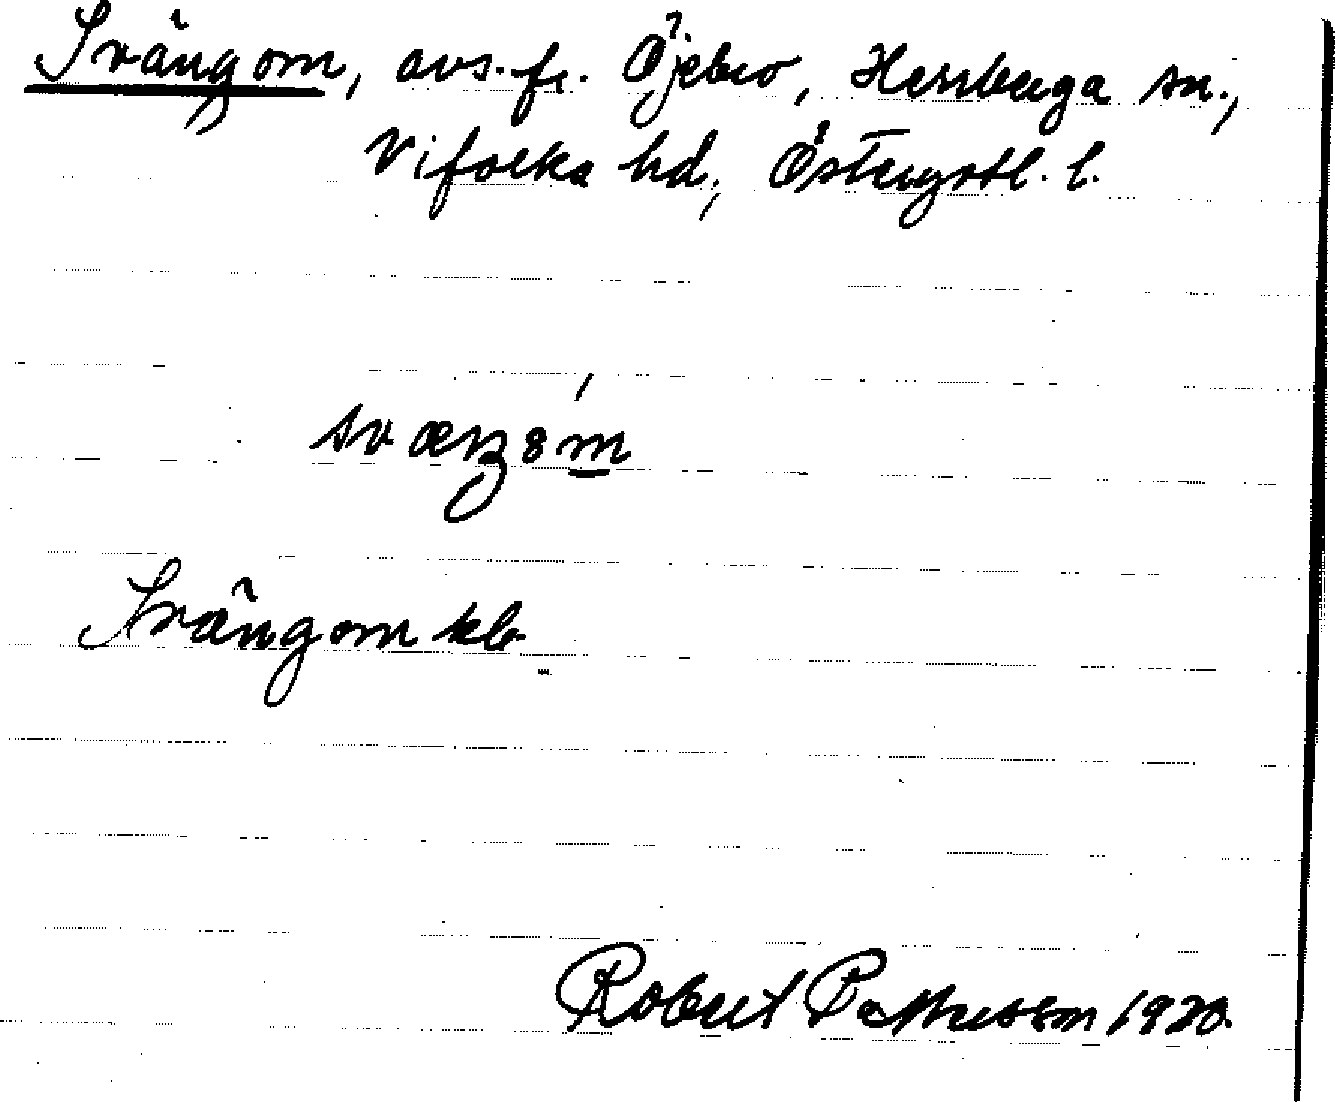 Svängom, avs. fr. Öjebro, Herrberga sn.,
Vifolka hd, Östergötl. l.
Svängom kb
Robert Pettersson 1920.